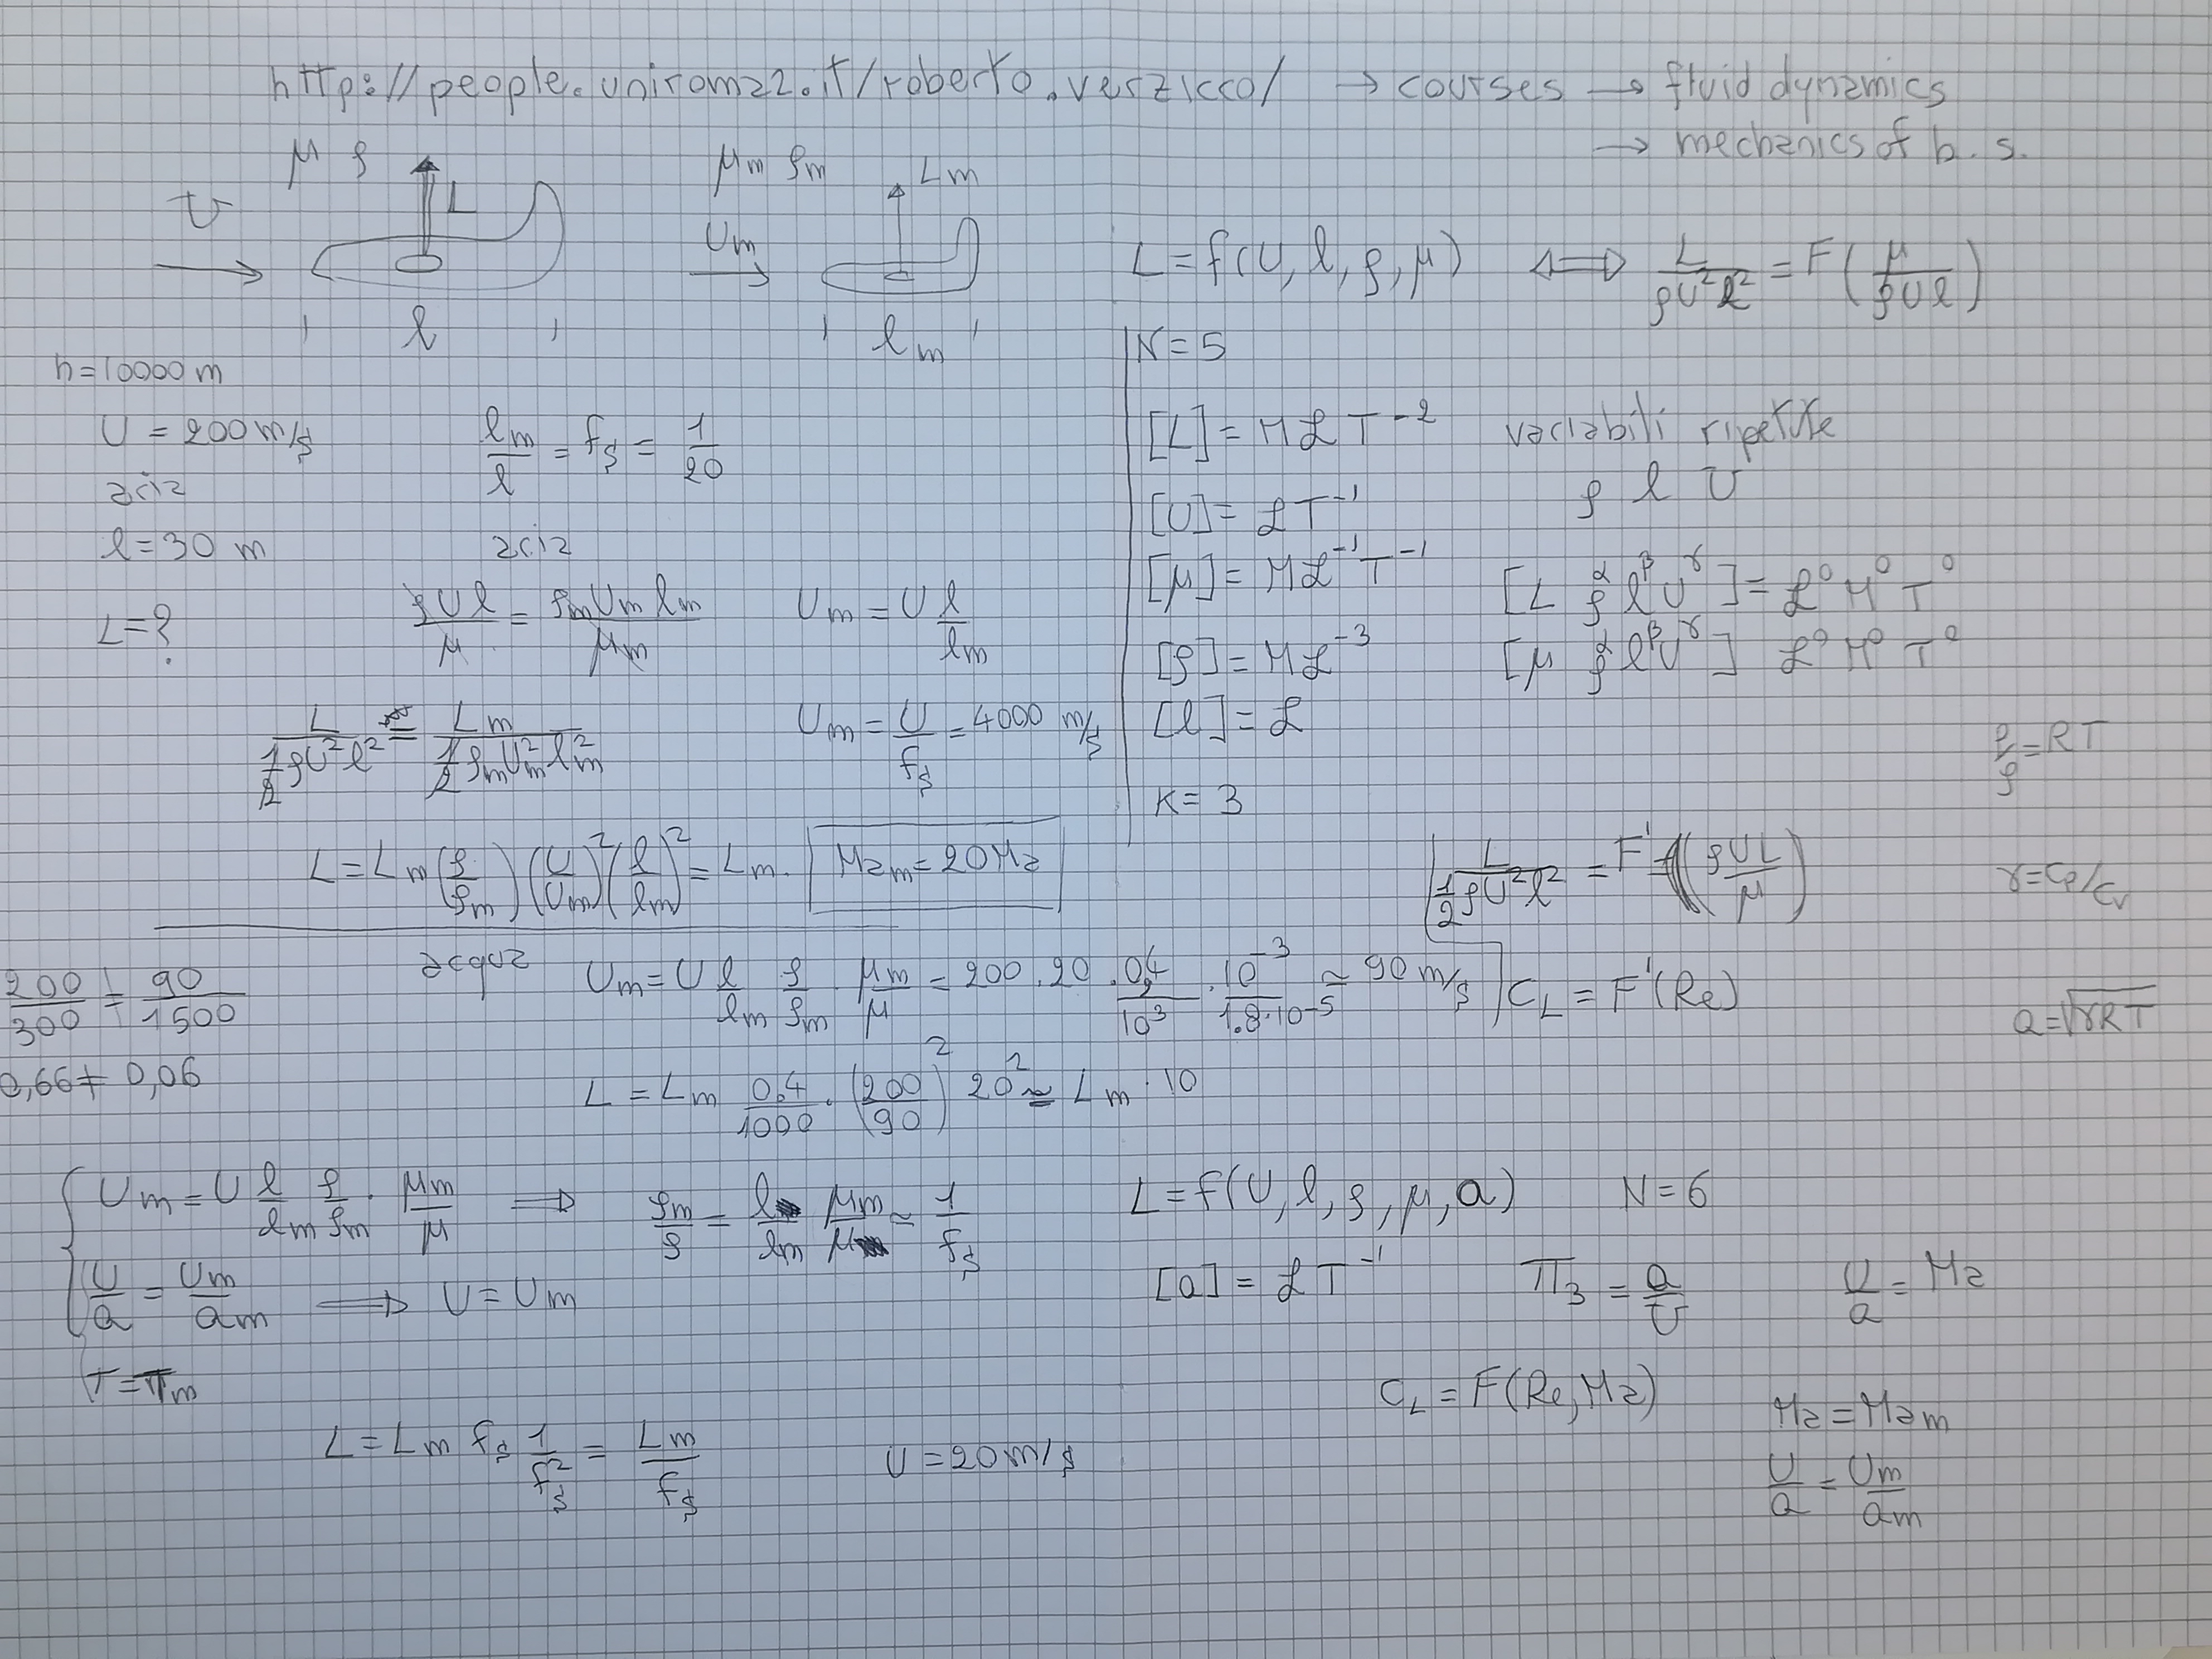 http://people.uniroma2.it/roberto.verzicco/ → courses → fluid dynamics
→ mechanics of b. s.
μ ρ L
U
l
μm ρm Lm
Um
lm
L = f(U, l, ρ, μ) ⟺ L/(ρU²l²) = F(μ/(ρUl))
h=10000 m
U = 200 m/s
aria
l=30 m
L=?
lm/l = fs = 1/20
aria
ρUl/μ = ρm Um lm/μm
Um = U l/lm
L/(1/2 ρU²l²) = Lm/(1/2 ρm Um² lm²)
Um = U/fs = 4000 m/s
L = Lm (ρ/ρm) (U/Um)² (l/lm)² = Lm.
Mam = 20Ma
N=5
[L] = M L T⁻²
[U] = L T⁻¹
[μ] = M L⁻¹ T⁻¹
[ρ] = M L⁻³
[l] = L
K = 3
variabili ripetute
ρ l U
[L ρ^α l^β U^γ] = L⁰ M⁰ T⁰
[μ ρ^α l^β U^γ] L⁰ M⁰ T⁰
p/ρ = RT
γ=cp/cv
a=√(γRT)
L/(1/2 ρU²l²) = F'(ρUL/μ)
CL = F'(Re)
200/300 = 90/1500
0,66≠ 0,06
acqua
Um = U l/lm ρ/ρm . μm/μ = 200.20 . 0,4/10³ . 10⁻³/1.8·10⁻⁵ ≃ 90 m/s
L = Lm 0,4/1000 . (200/90)² 20² ≃ Lm · 10
Um = U l/lm ρ/ρm . μm/μ ⟹ ρm/ρ = l/lm μm/μ ≃ 1/fs
U/a = Um/am ⟹ U = Um
T=Tm
L = Lm fs 1/fs² = Lm/fs
U = 20 m/s
L = f(U, l, ρ, μ, a) N = 6
[a] = L T⁻¹ π₃ = a/U U/a = Ma
CL = F(Re, Ma)
Ma = Mam
U/a = Um/am